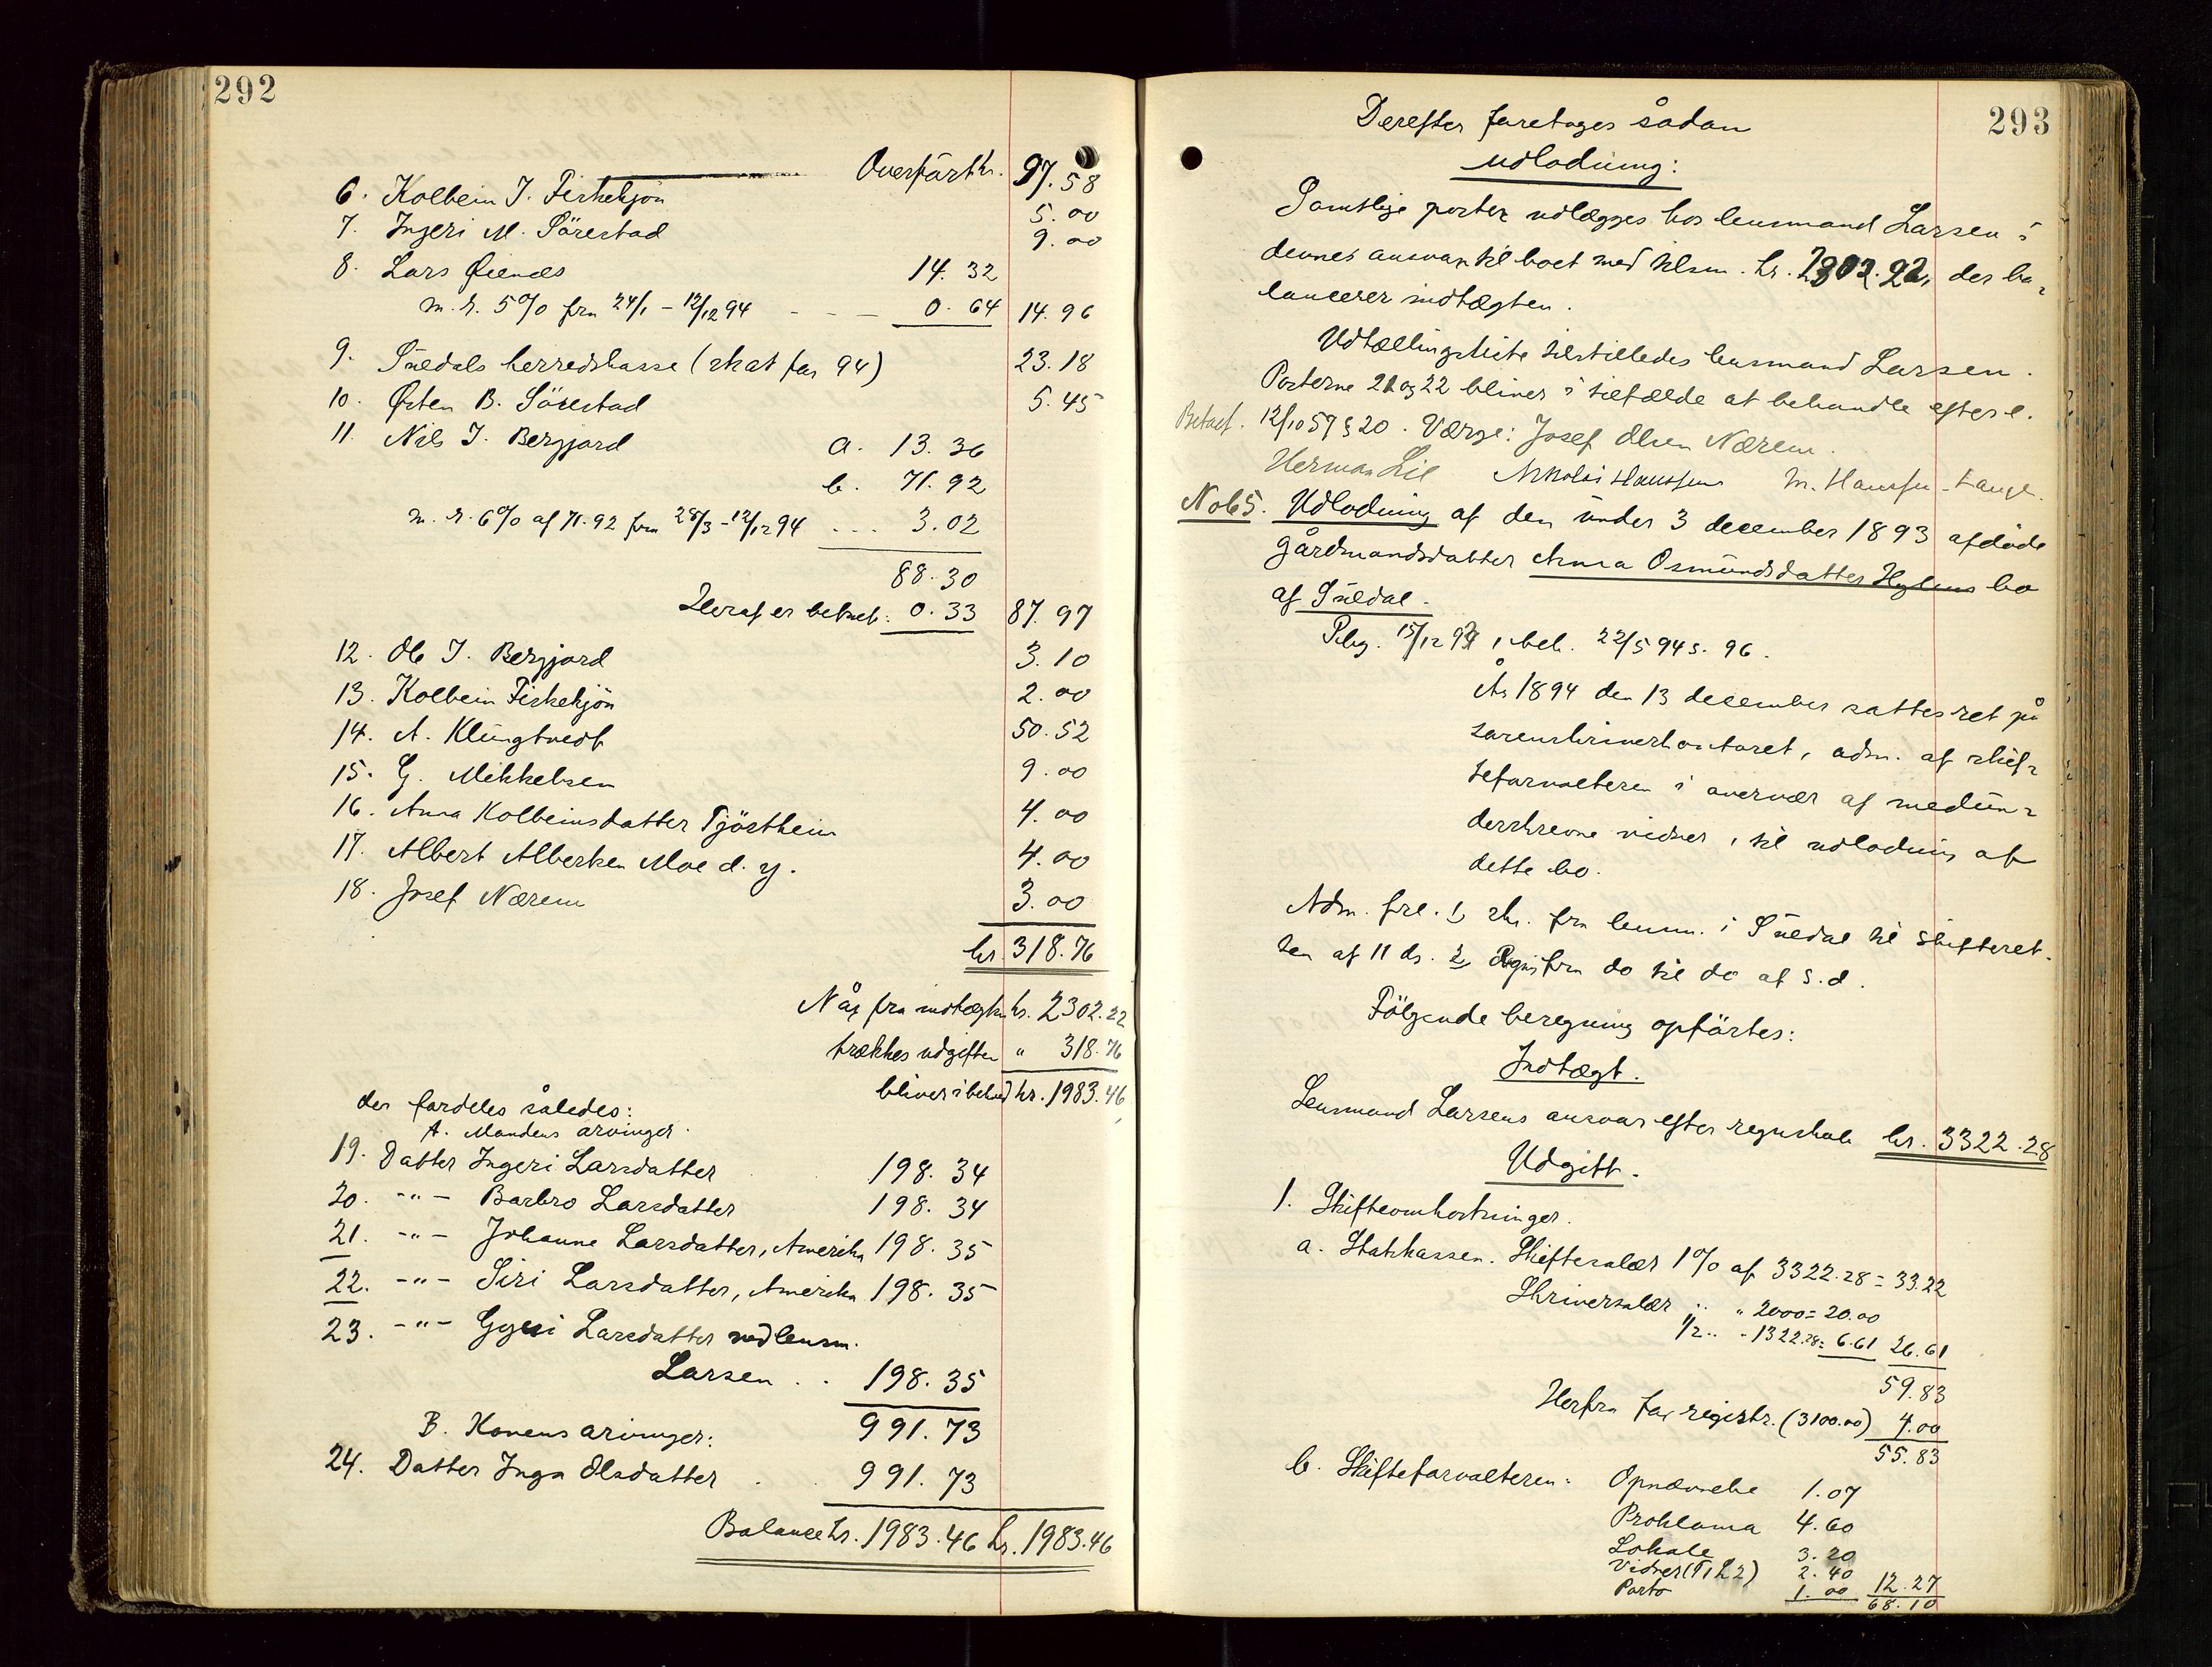 292
Overført kr. 97.58
6. Kolbein J. Fiskekjön 5.00
7. Ingeri M. Sörestad 9.00
8. Lars Øiendes 14.32
m. r. 5% fra 24/1 - 12/12 94 - - - 0.64 14.96
9. Suledals herredskasse (skat for 94) 23.18
10. Østen B. Sörestad 5.45
11. Nils J. Bergjord a. 13.36
b. 71.92
m. r. 6% af 71.92 fra 28/3 - 12/12 94 ... 3.02
88.30
Heraf er betalt: 0.33 87.97
12. Ole J. Bergjord 3.10
13. Kolbein Fiskekjön 2.00
14. A. Klungtvedt 50.52
15. G. Mikkelsen 9.00
16. Anna Kolbeinsdatter Tjöstheim 4.00
17. Albert Albertsen Moe d. y. 4.00
18. Josef Nærem 3.00
kr. 318.76
Når fra indtægten kr. 2302.22
trækkes udgiften " 318.76
bliver i behold kr. 1983.46
der fordeles således:
A. Mandens arvinger.
19. Datter Ingeri Larsdatter 198.34
20. -"- Barbro Larsdatter 198.34
21. -"- Johanne Larsdatter, Amerika 198.35
22. -"- Siri Larsdatter, Amerika 198.35
23. -"- Gyri Larsdatter ved lensm.
Larsen . . 198.35
991.73
B. Konens arvinger:
24. Datter Inga Olsdatter . . 991.73
Balance kr. 1983.46 kr. 1983.46
293
Derefter foretoges sådan
udlodning:
Samtlige poster udlægges hos lensmand Larsen i
dennes ansvar til boet med tilsm. kr. 2302.22, der ba-
lancerer indtægten.
Udtællingsliste tilstilledes lensmand Larsen.
Posterne 21 og 22 bliver i tilfælde at behandle efter l.
Betalt. 12/10 57 § 20. Værge: Josef Olsen Nærem.
Herman Lie Nikolai Haussen M. Haussen-Hauge.
No 65. Udlodning af den under 3 december 1893 afdöde
gårdmandsdatter Anna Osmundsdatter Hylens bo
af Suledal.
Pbg. 15/12 93, beh. 22/5 94 s. 96.
År 1894 den 13 december sattes ret på
sorenskriverkontoret, adm. af skif-
teforvalteren i overvær af medun-
derskrevne vidner, til udlodning af
dette bo.
Adm. frel. 1, skr. fra lensm. i Suledal til skifteret-
ten af 11 ds. 2, regnsk. fra do til do af s. d.
Fölgende beregning opförtes:
Indtægt.
Lensmand Larsens ansvar efter regnskab kr. 3322.28
Udgift.
1. Skifteomkostninger.
a. Statskassen. Skiftesalær 1% af 3322.28 = 33.22
Skriversalær " " 2000 = 20.00
1/2 " " 1322.28 = 6.61 26.61
59.83
Herfra for registr. (3100.00) 4.00
55.83
b. Skifteforvalteren: Opnævnelse 1.07
Proklama 4.60
Lokale 3.20
Vidner (T. 1 & 2) 2.40
Porto 1.00 12.27
68.10